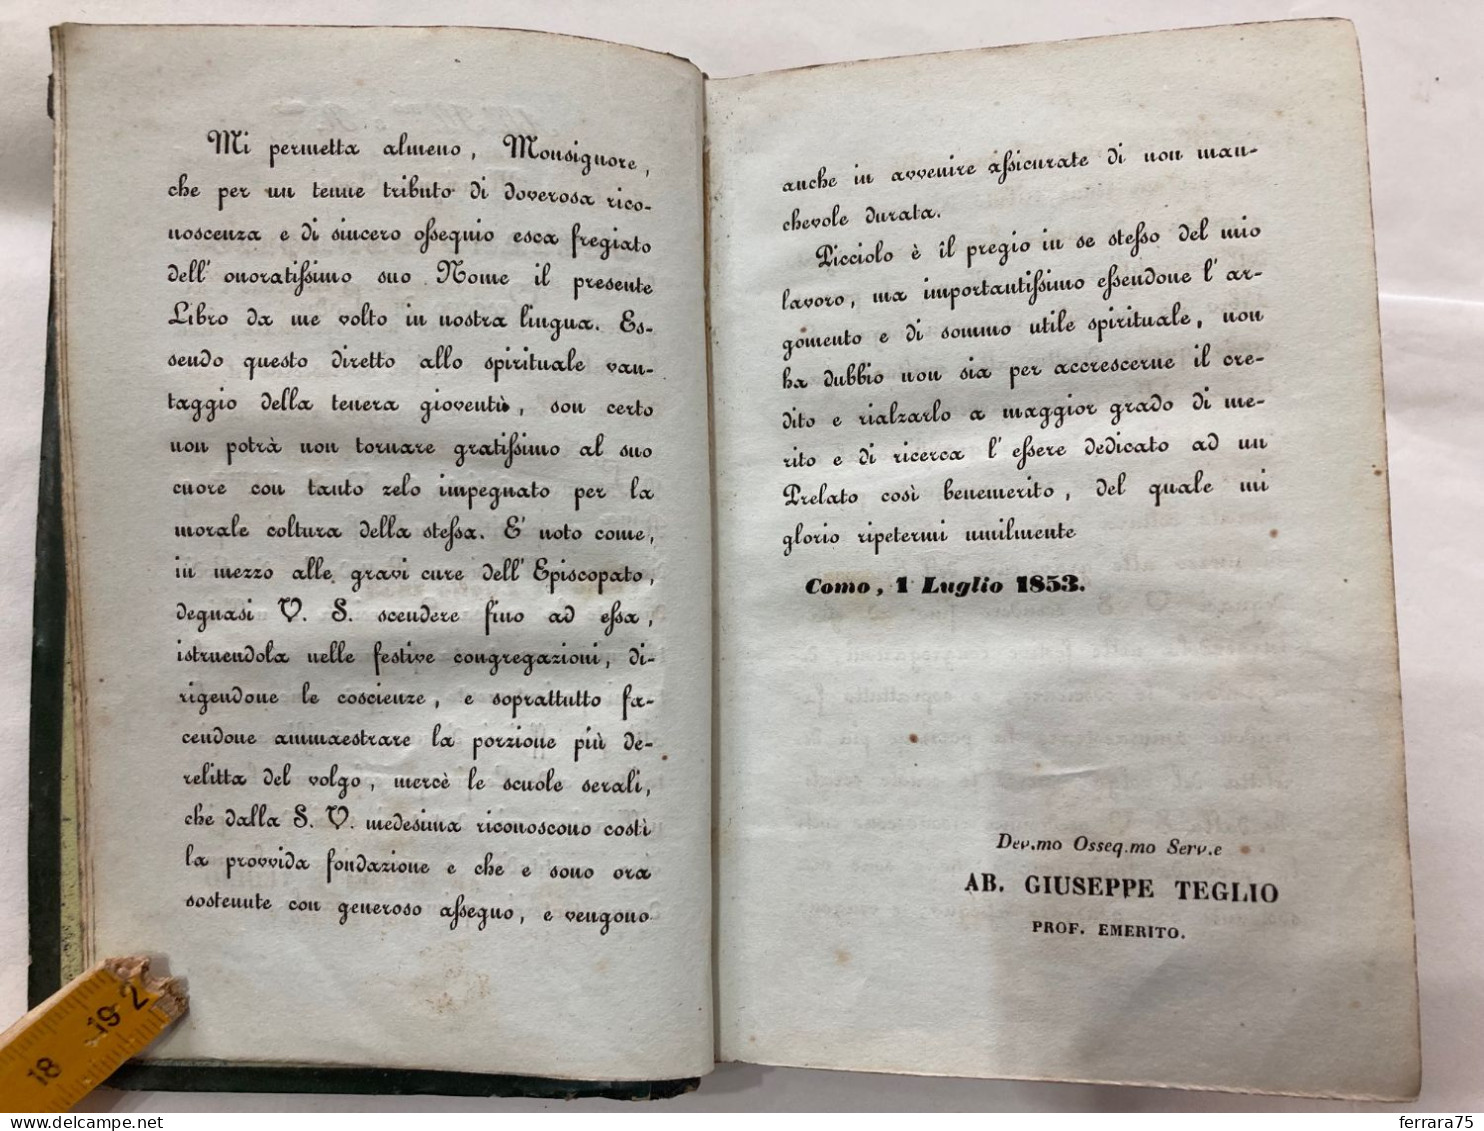 Mi permetta almeno, Monsignore,
che per un tenue tributo di doverosa rico-
noscenza e di sincero ossequio esca fregiato
dell' onoratissimo suo Nome il presente
Libro da me volto in nostra lingua. Es-
sendo questo diretto allo spirituale van-
taggio della tenera gioventù, son certo
non potrà non tornare gratissimo al suo
cuore con tanto zelo impegnato per la
morale coltura della stessa. E' noto come,
in mezzo alle gravi cure dell' Episcopato,
degnasi V. S. scendere fino ad essa,
istruendola nelle festive congregazioni, di-
rigendone le coscienze, e soprattutto fa-
cendone ammaestrare la porzione più de-
relitta del volgo, mercè le scuole serali,
che dalla S. V. medesima riconoscono costì
la provvida fondazione e che e sono ora
sostenute con generoso assegno, e vengono
anche in avvenire assicurate di non man-
chevole durata.
Picciolo è il pregio in se stesso del mio
lavoro, ma importantissimo essendone l' ar-
gomento e di sommo utile spirituale, non
ha dubbio non sia per accrescerne il cre-
dito e rialzarlo a maggior grado di me-
rito e di ricerca l' essere dedicato ad un
Prelato così benemerito, del quale mi
glorio ripetermi umilmente
Como, 1 Luglio 1853.
Dev.mo Osseq.mo Serv.e
AB. GIUSEPPE TEGLIO
PROF. EMERITO.
18 19 2
ferrara75